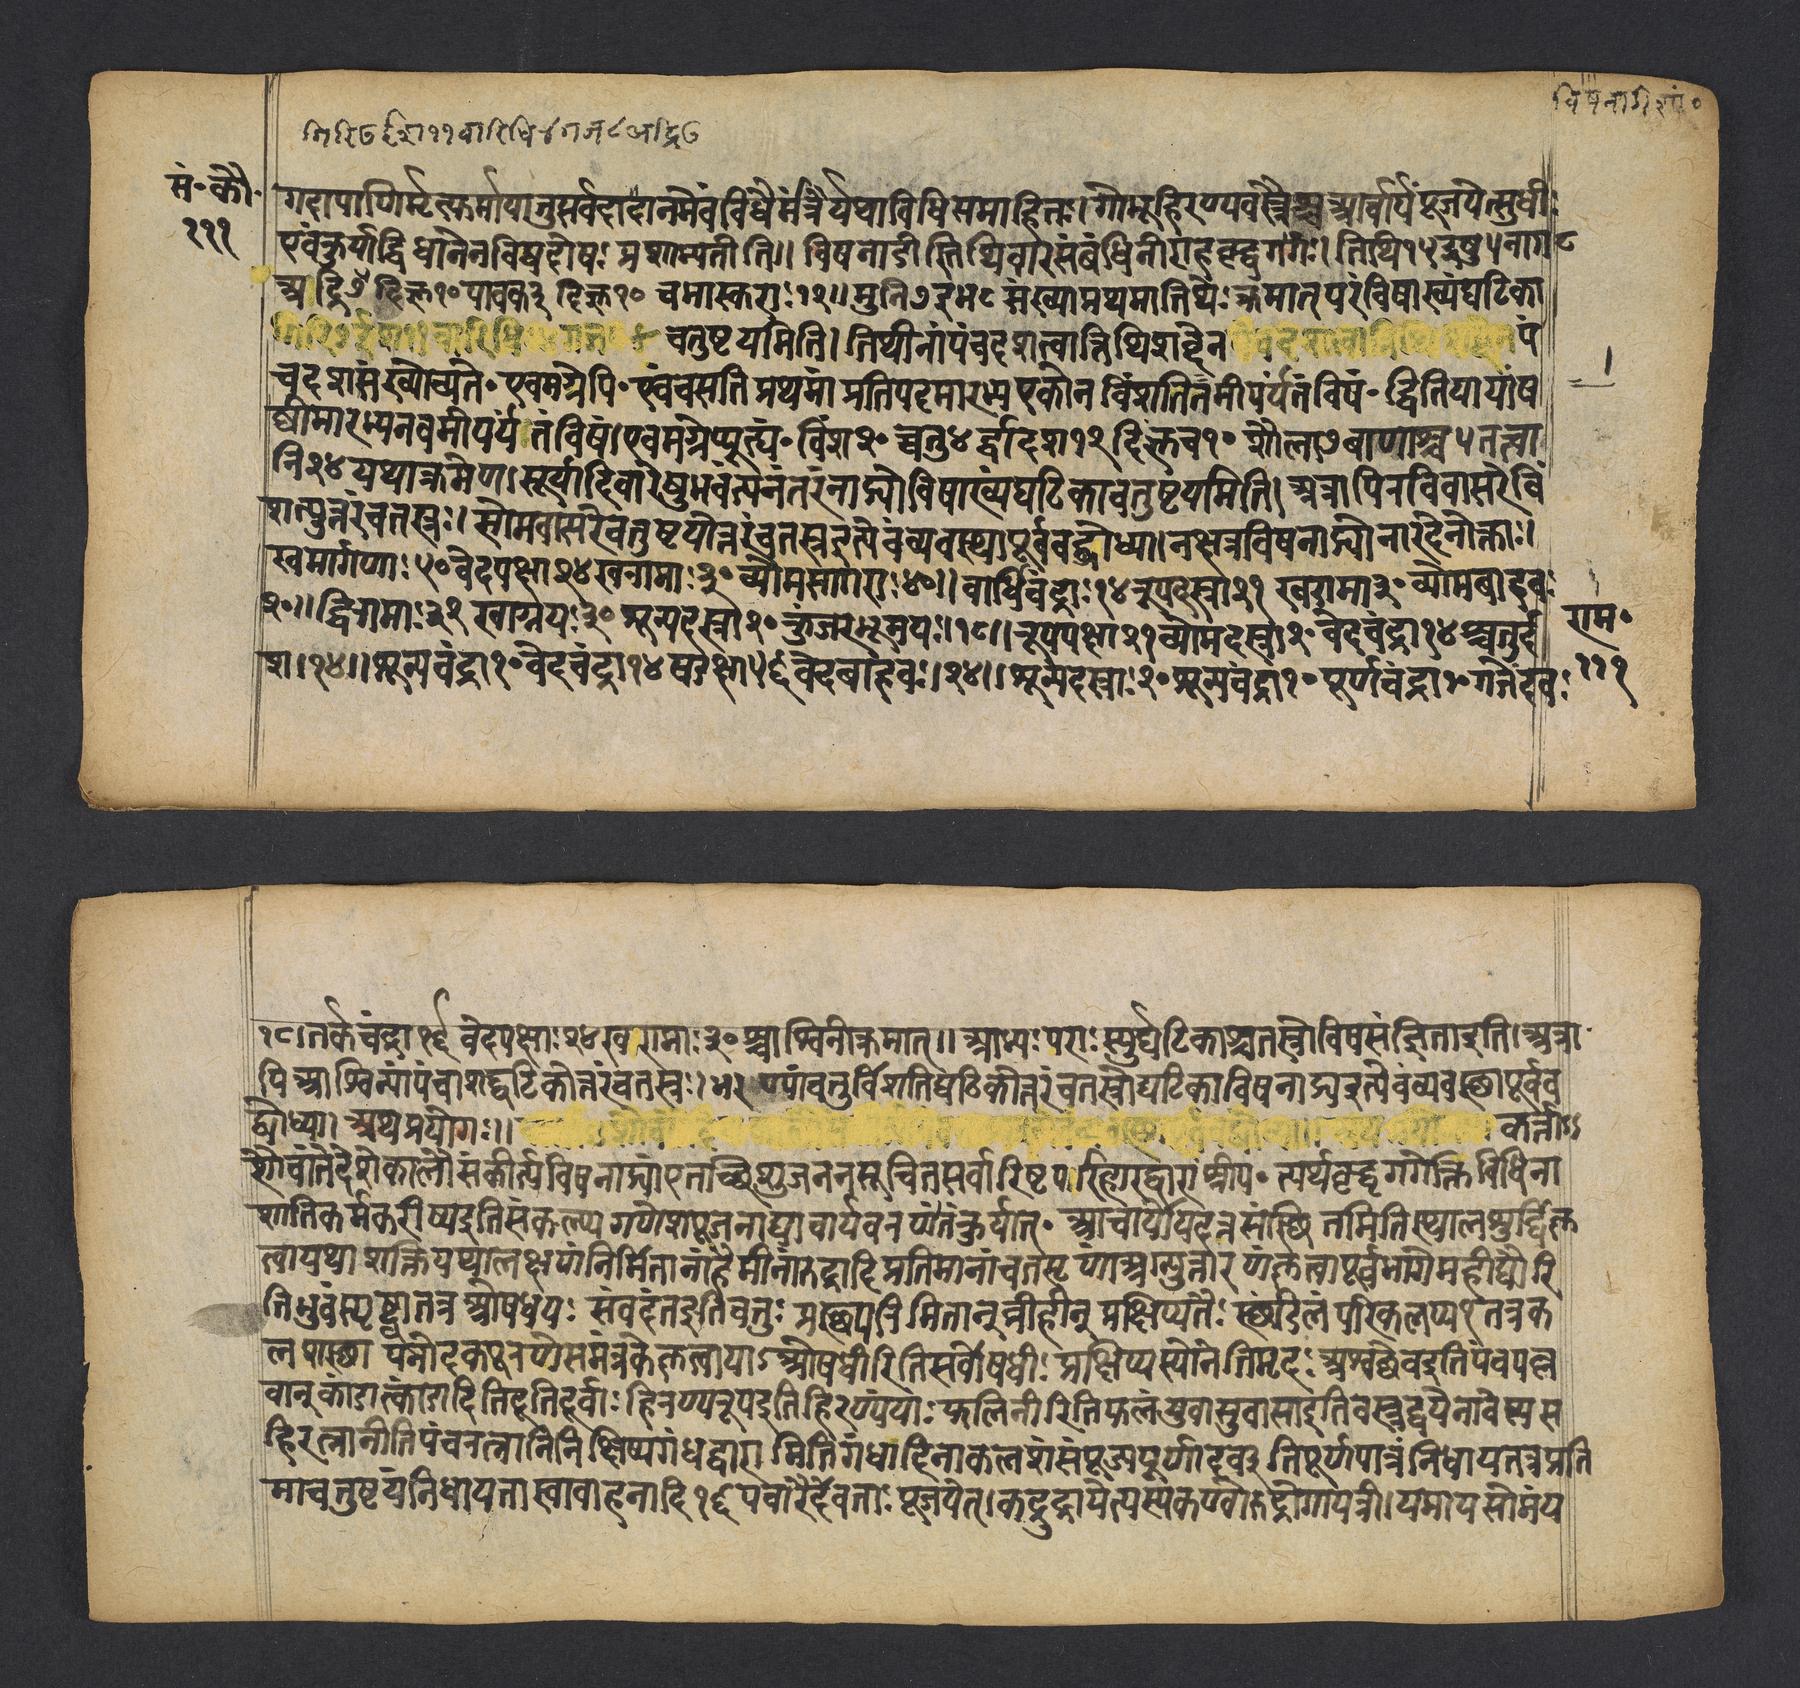 विषनाडी शां०
गिरि७र्ईश११वारिधि४गज८अद्रि७
सं॰कौ॰
१११
गदापाणिर्म्मृत्कर्मापातुसर्वदादानमेवंविधैर्मंत्रैर्यथाविधिसमाहितः।गोभूहिरण्यवस्त्रैश्चआचार्यंपूजयेत्सुधीः
एवंकुर्याद्विधानेनविषदोषःप्रशाम्यतीति॥विषनाडीस्तिथिवारसंबंधिनीराहवृद्धगर्गः।तिथि१५इषु५नाग८
अद्रि७दिक्१०पावक३दिक्१०चभास्कराः१२॥मुनि७इभ८संख्याप्रथमातिथेःक्रमात्परंविषाख्यंघटिका
चतुष्टयमिति।तिथीनांपंचदशत्वात्तिथिशब्देनपं
चदशसंख्योच्यते॰एवमग्रेपि॰एवंचसतिप्रथमांप्रतिपदमारभ्यएकोनविंशतितमीपर्यंतंविषं॰द्वितियायांष
ष्ठीमारभ्यनवमीपर्यंतंविषं।एवमग्रेप्यूह्यं॰विंश२०च्चतु४र्द्वादश१२दिक्च१०शैला७बाणाश्च५तत्वा
नि२४यथाक्रमेण।सूर्यादिवारेषुभवंत्यनंतरंनाड्योविषाख्यंघटिकाचतुष्टयमिति।अत्रापिरविवासरेविं
शत्युत्तरंचतस्रः।सोमवासरेचतुष्टयोत्तरंचतस्रइत्येवंव्यवस्थापूर्ववद्बोध्या।नक्षत्रविषनाड्योनारदेनोक्ताः।
खमार्गणाः५०वेदपक्षा२४खरामाः३०व्योमसागराः४०॥वार्धिचंद्राः१४रूपदस्रा२१खरामा३०व्योमबाहवः
२०॥द्विरामाः३२खाग्नयः३०शून्यदस्रा२०कुंजरभूमयः॥१८॥रूपपक्षा२१व्योमदस्रा२०वेदचंद्रा१४श्चतुर्द
श॥१४॥शून्यचंद्रा१०वेदचंद्रा१४षडक्षा५६वेदबाहवः॥२४॥शून्यदस्राः२०शून्यचंद्रा१०पूर्णचंद्रा१०गजेंदवः
राम॰
१११
१८।तर्कचंद्रा१६वेदपक्षाः२४खरामाः३०श्चाश्विनीक्रमात्॥आभ्यःपराःस्युर्घटिकाश्चतस्रोविषसंज्ञिताइति।अत्रा
पिआश्विन्यांपंचाशद्घटिकोत्तरंचतस्रः।भरण्यांचतुर्विंशतिघटिकोत्तरंचतस्रोघटिकाविषनाड्यइत्येवंव्यवस्थापूर्वव
द्बोध्या।अथप्रयोगः॥कर्त्ताऽ
शौचांतेदेशकालौसंकीर्त्यविषनाड्यांएतच्छिशुजननसूचितसर्वारिष्टपरिहारद्वाराश्रीप॰त्यर्थवृद्धगर्गोक्तविधिना
शांतिकर्मकरीष्यइतिसंकल्प्यगणेशपूजनाद्याचार्यवरणांतंकुर्यात्॰आचार्योयदत्रसंस्थितमितिस्थालशुद्धिंकृ
त्वायथाशक्तियथालक्षणंनिर्मितानांहैमीनांरुद्रादिप्रतिमानांचतसृणांअग्न्युत्तारणंकृत्वापूर्वभागेमहीद्यौरि
तिभुवंस्पृष्ट्वातत्रओषधयःसंवदंतइतिचतुःप्रस्थपरिमितान्व्रीहीन्प्रक्षिप्यतैःस्थंडिलंपरिकल्प्य१तत्रक
लशंस्थापनोदकपूरणेसमंत्रकेकृत्वाया ओषधीरितिसर्वौषधीःप्रक्षिप्यस्योनेतिमृदःअश्वत्थेवइतिपंचपल्ल
वान्कांडात्कांडादितिदूतिदूर्वाःहिरण्यरूपइतिहिरण्यंयाःफलिनीरितिफलंयुवासुवासाइतिवस्त्रद्वयेनावेष्ट्यस
हिरत्नानीतिपंचरत्नानिनिक्षिप्यगंधद्वारामितिगंधादिनाकलशंसंपूज्यपूर्णादवइतिपूर्णपात्रंनिधायतत्रप्रति
माचतुष्टयंनिधायतास्वावाहनादि१६पचारैर्देवताःपूजयेत्।कद्रुद्रायेत्यस्यकण्वोरुद्रोगायत्री।यमायसोमंय